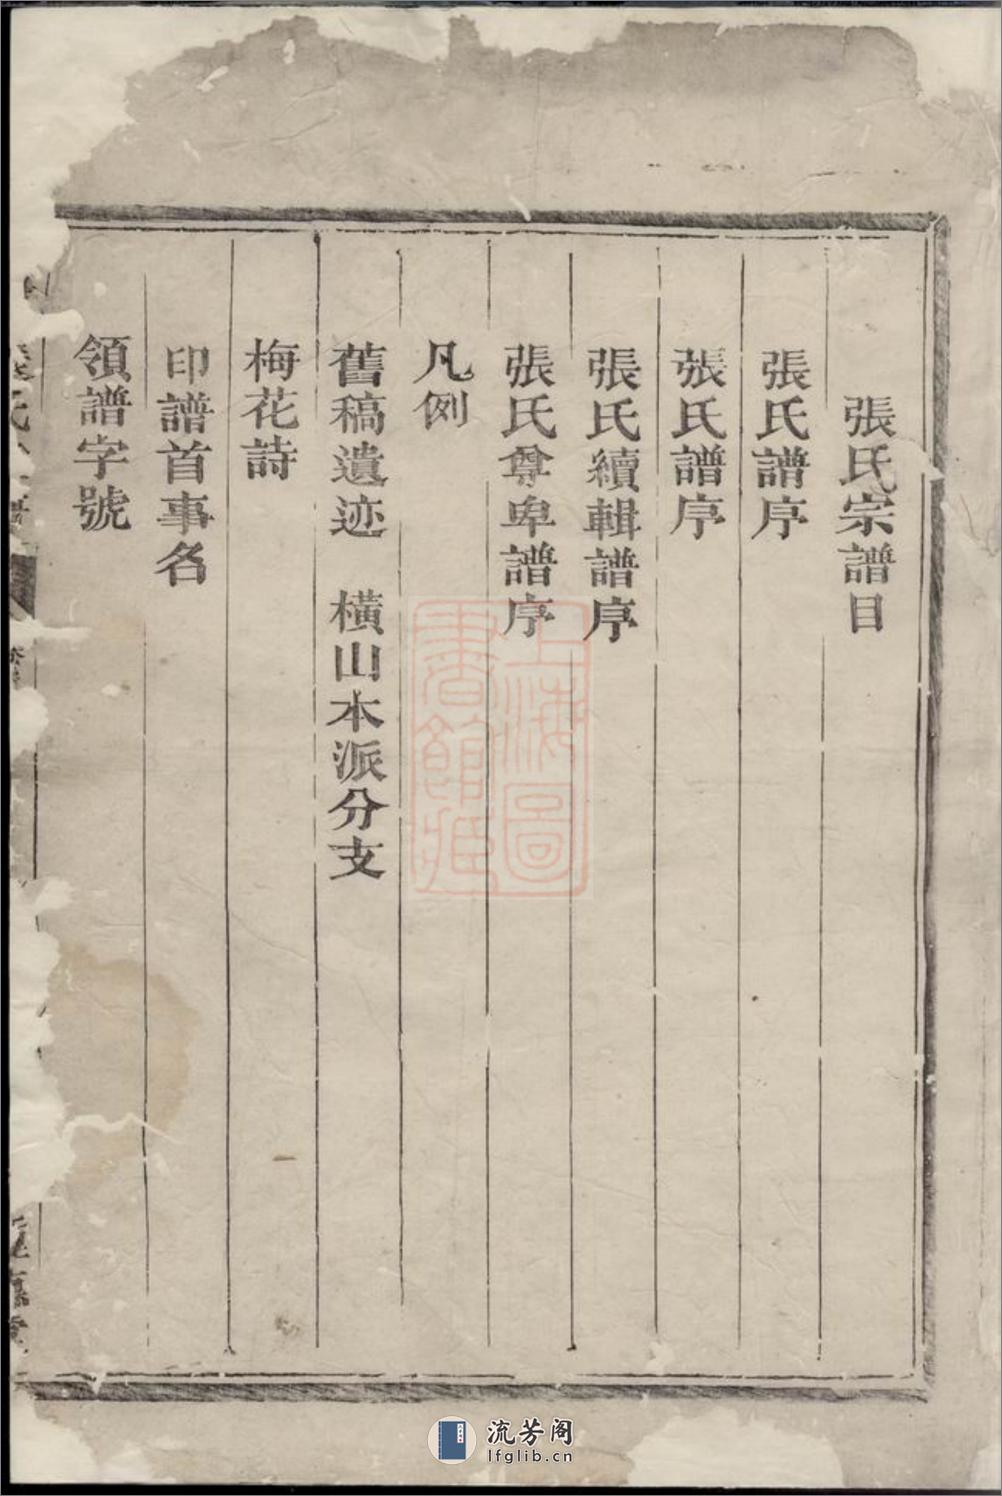 張氏宗譜目
張氏譜序
張氏譜序
張氏續輯譜序
張氏尊卑譜序
凡例
舊稿遺迹 橫山本派分支
梅花詩
印譜首事名
領譜字號
上海圖書館藏
流芳阁
lfglib.cn